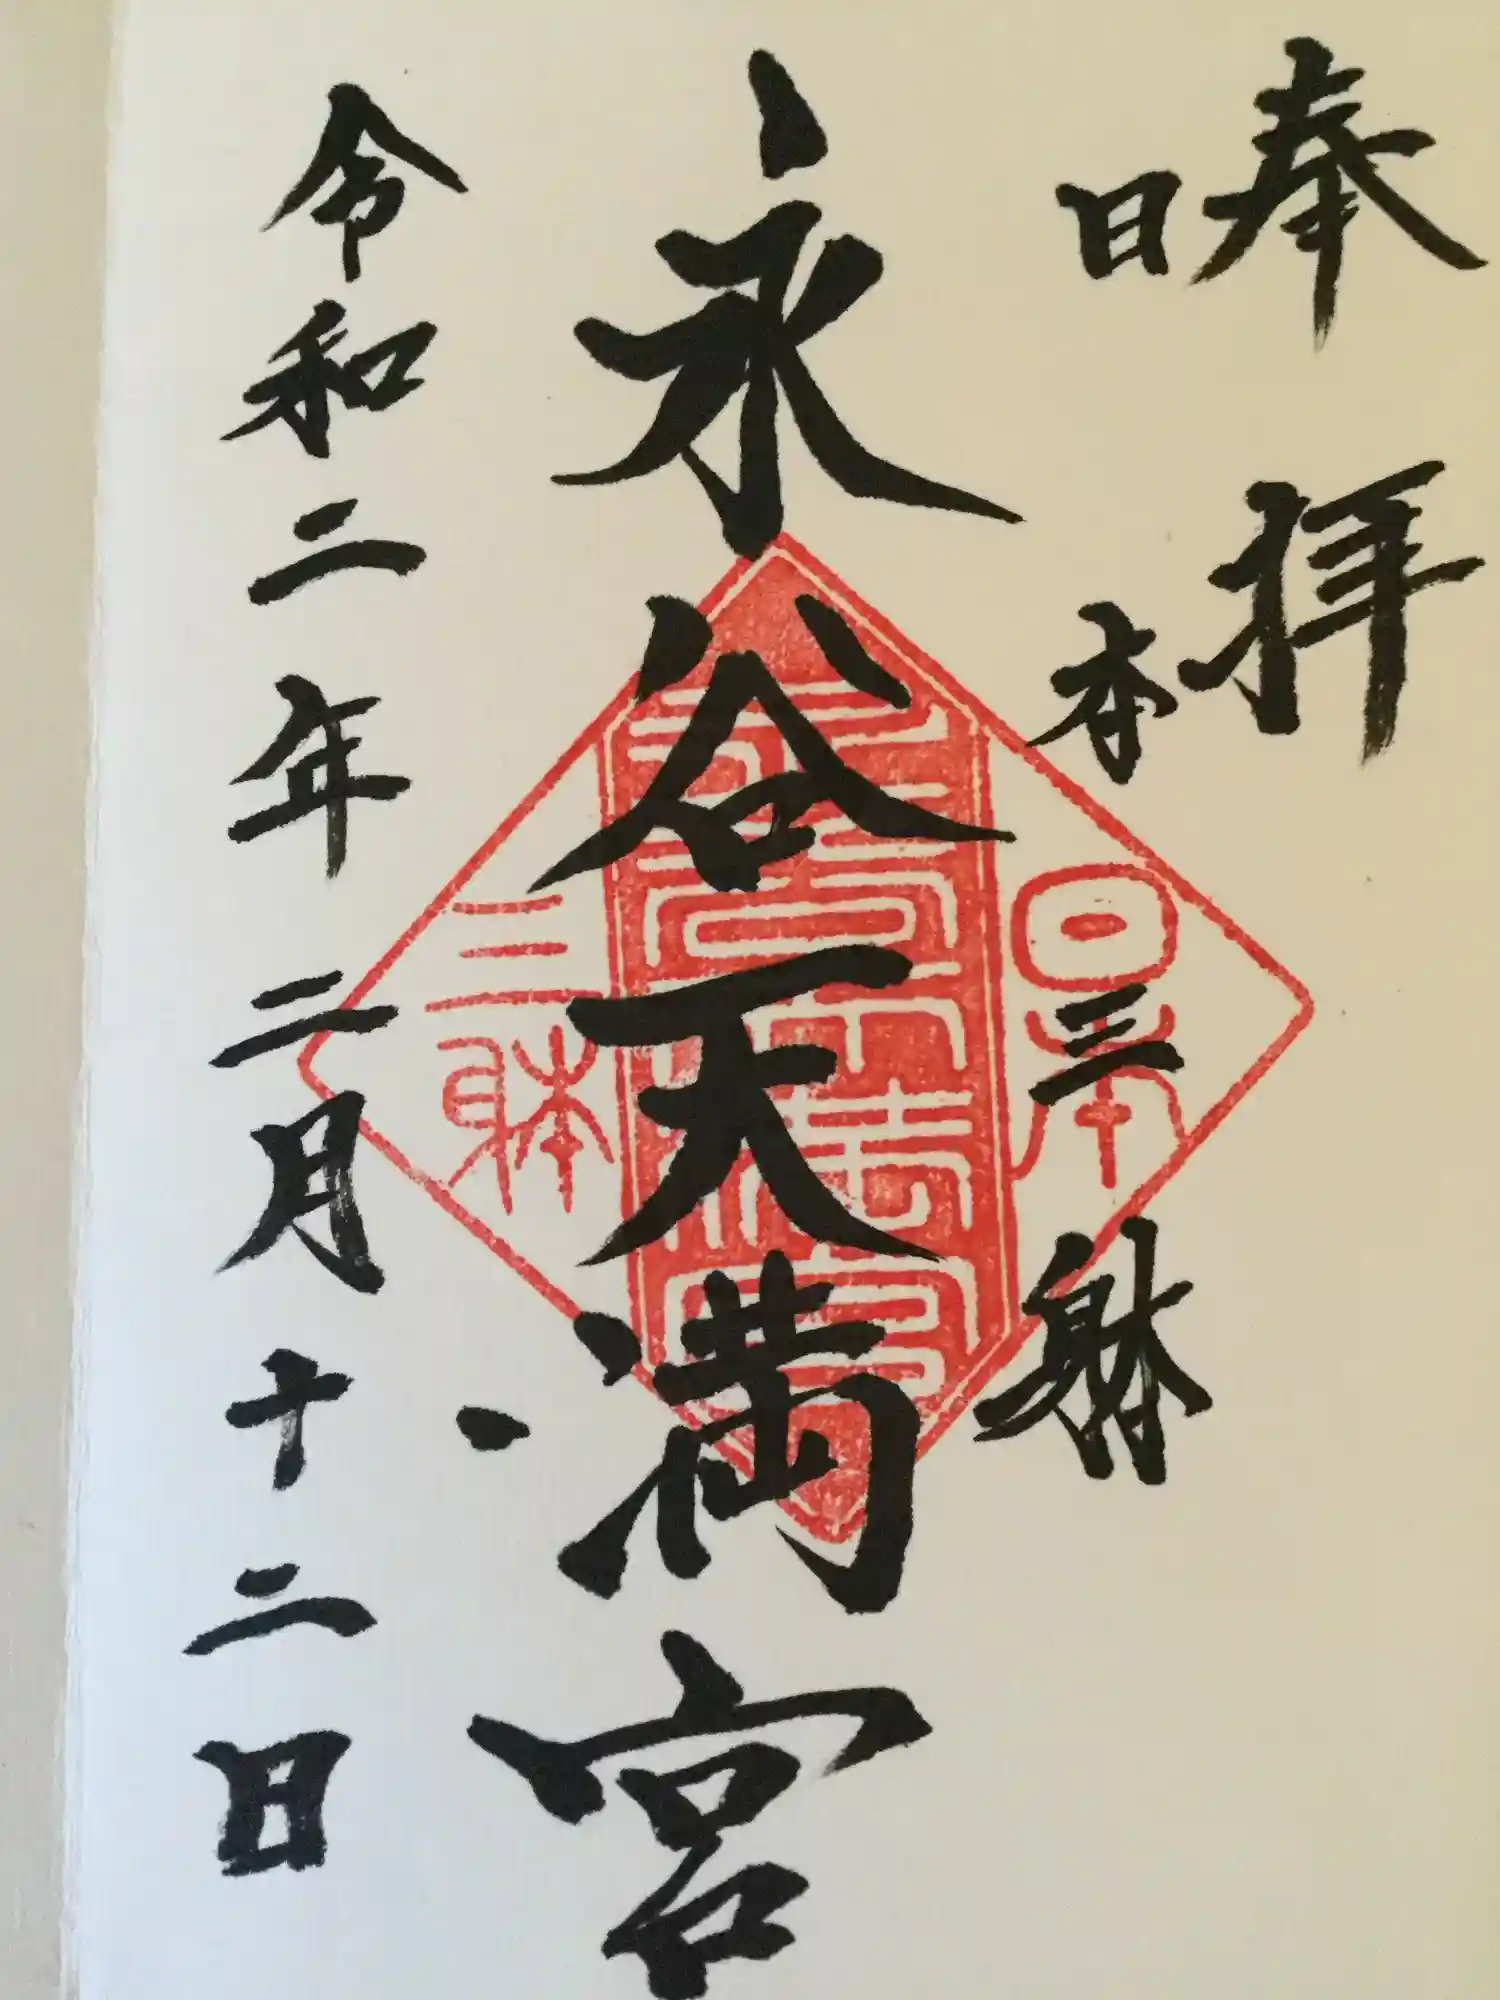 奉拝
日本三躰
永谷天満宮
令和二年二月十二日
日本
永谷天満宮
三躰